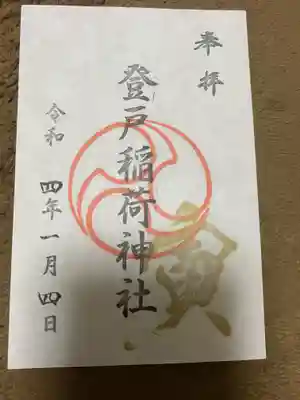 奉拝
登戸稲荷神社
寅
令和四年一月四日